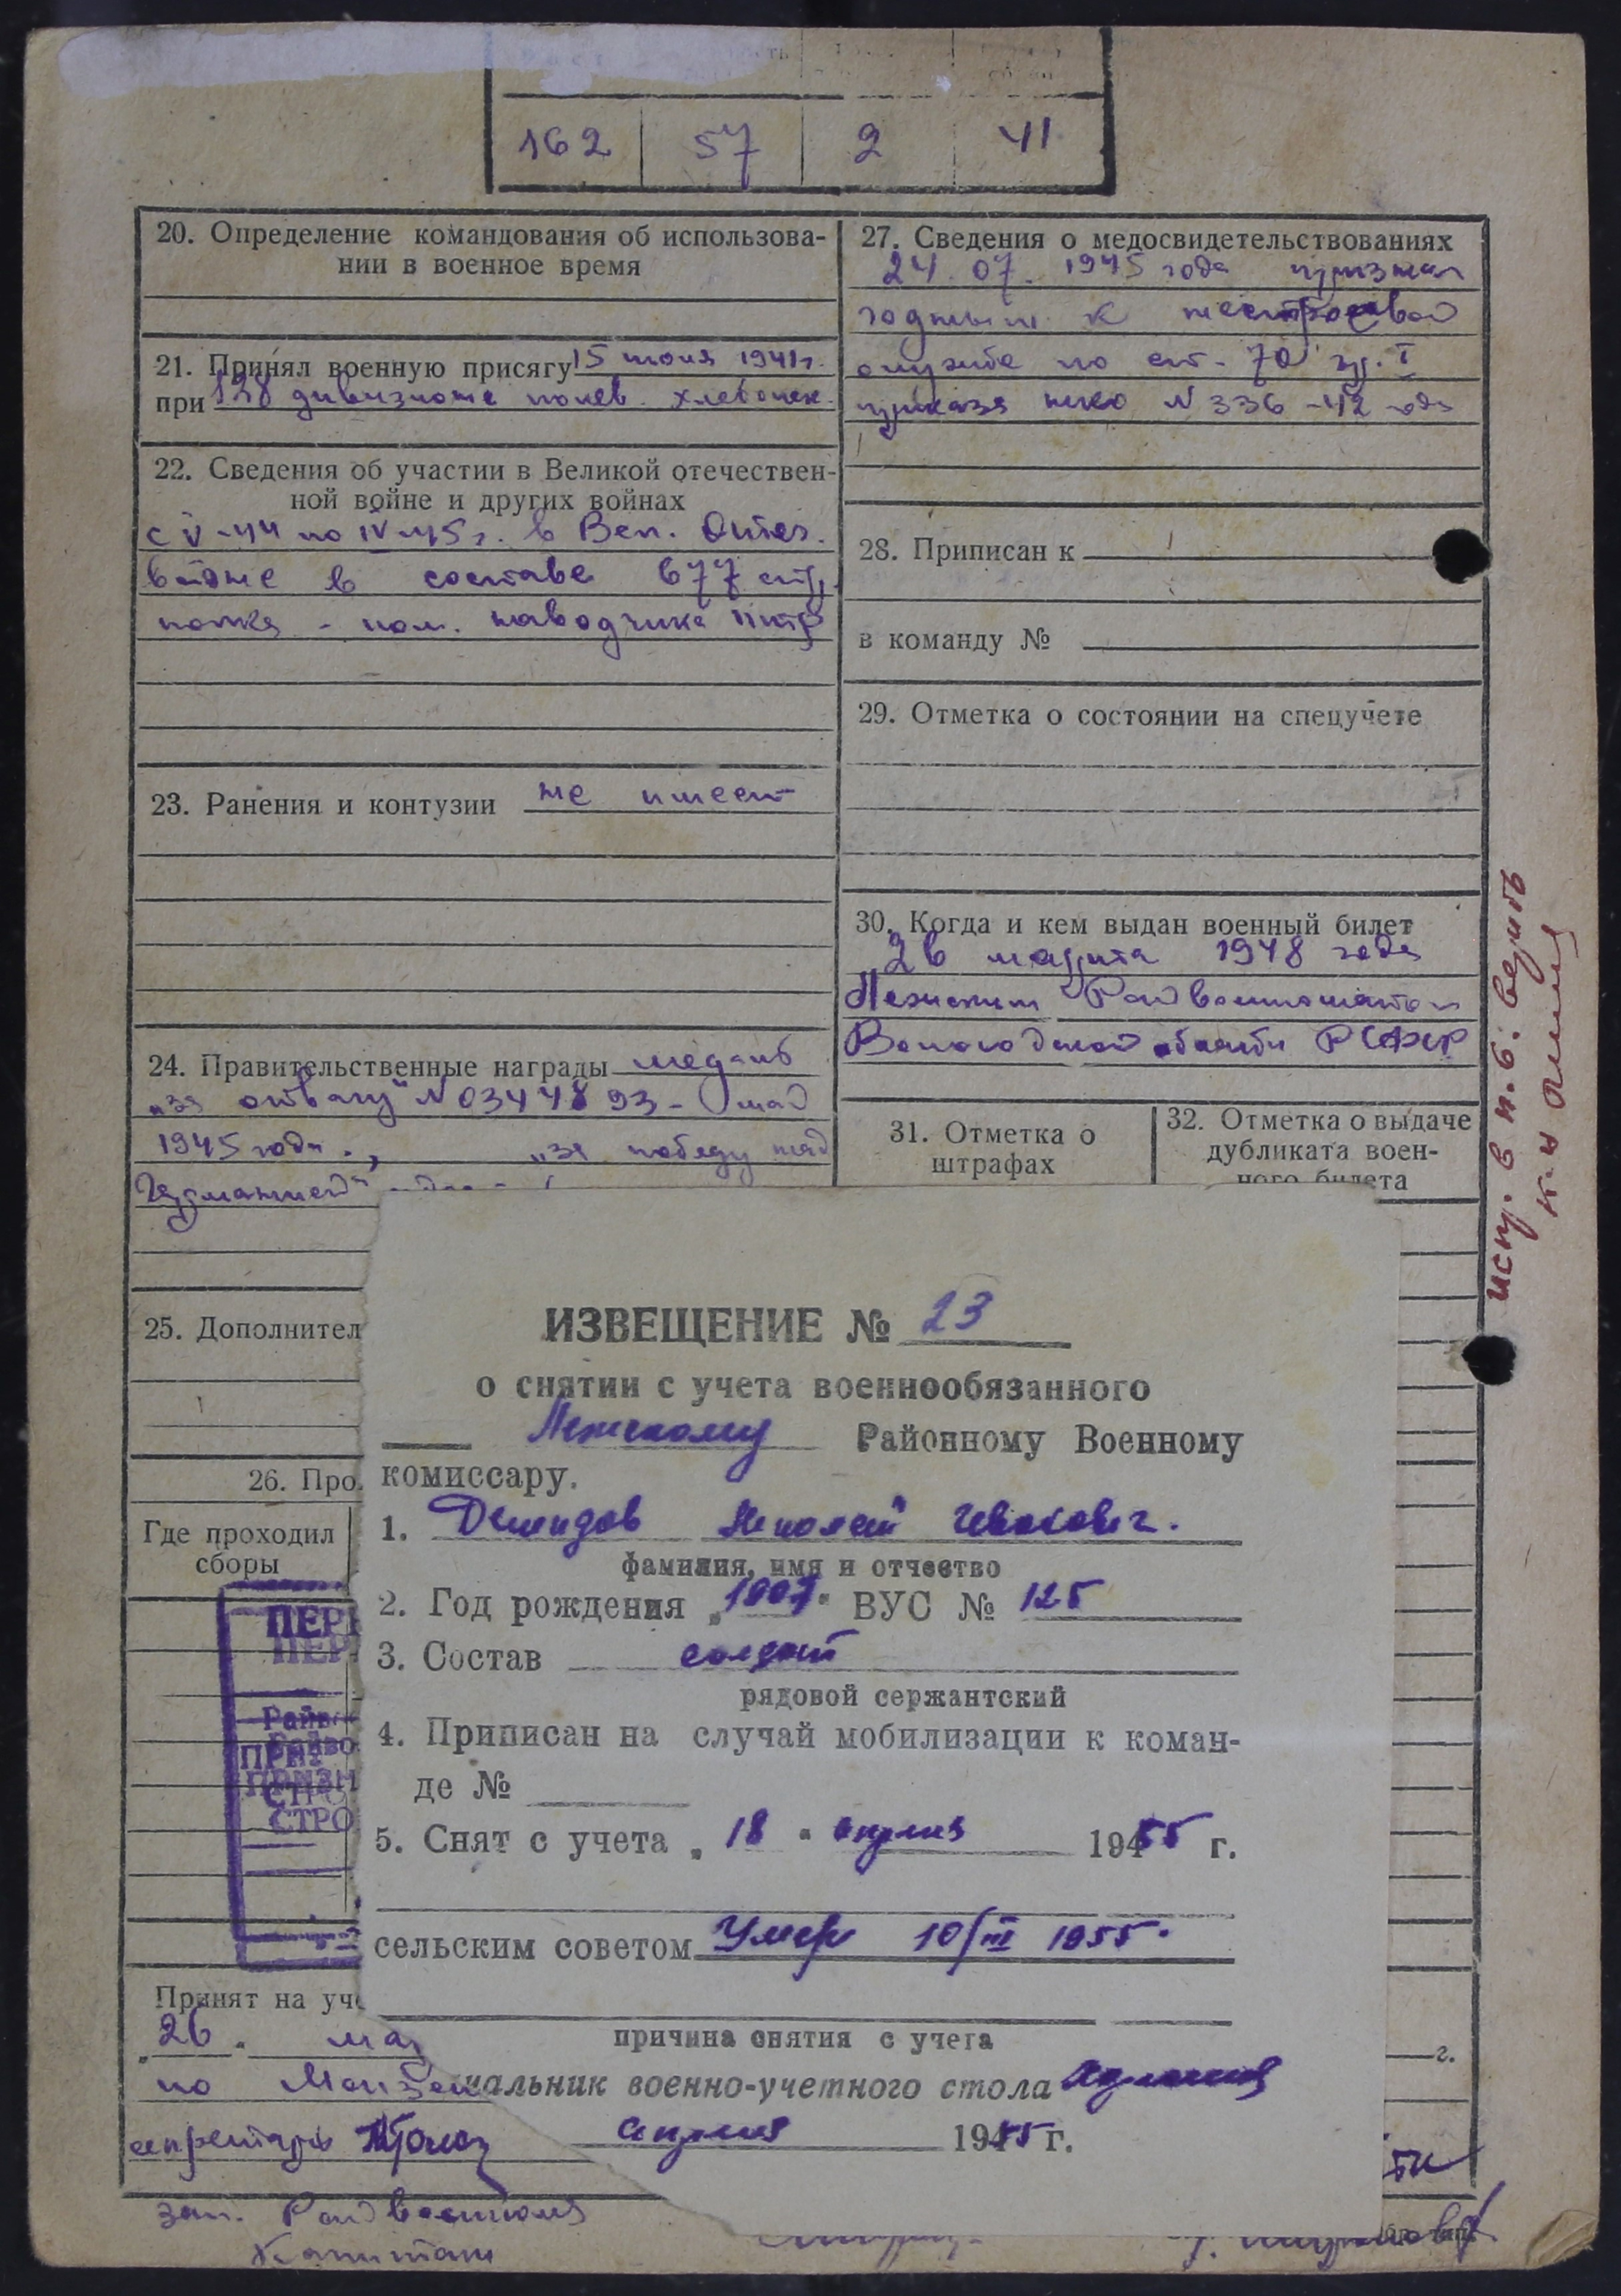 162 57 2 41
20. Определение командования об использова-
нии в военное время
21. Принял военную присягу 15 июня 1941г.
при 138 дивизионе полев. хлебопек.
22. Сведения об участии в Великой отечествен-
ной войне и других войнах
с V-44 по IV-45г. в Вел. Отеч.
войне в составе 677 стр.
полка - пом. наводчика птр
23. Ранения и контузии не имеет
24. Правительственные награды медаль
„за отвагу" N 0344893 - май
1945 года., „за победу над
Германией"
25. Дополнител
26. Про
Где проходил
сборы
ПЕР
ПЕР
Райво
ПРИЗН
СТРО
СТРО
Принят на уч
„26" мар
по
секретарь
зав. Райвоенком
Капитан
27. Сведения о медосвидетельствованиях
24.07.1945 года признан
годным к нестроевой
службе по ст. 70 гр. I
приказа нко N 336-42 года
28. Приписан к
в команду №
29. Отметка о состоянии на спецучете
30. Когда и кем выдан военный билет
26 марта 1948 года
Лежским Райвоенкоматом
Вологодской области РСФСР
31. Отметка о
штрафах
32. Отметка о выдаче
дубликата воен-
ного билета
г.
ИЗВЕЩЕНИЕ № 23
о снятии с учета военнообязанного
Лежскому Районному Военному
комиссару.
1. Демидов Николай Иванович.
фамилия, имя и отчество
2. Год рождения „1907" ВУС № 125
3. Состав солдат
рядовой сержантский
4. Приписан на случай мобилизации к коман-
де №
5. Снят с учета „18" апреля 1955 г.
сельским советом Умер 10/III 1955.
причина снятия с учета
чальник военно-учетного стола
апреля 1955 г.
испр. в н.б.